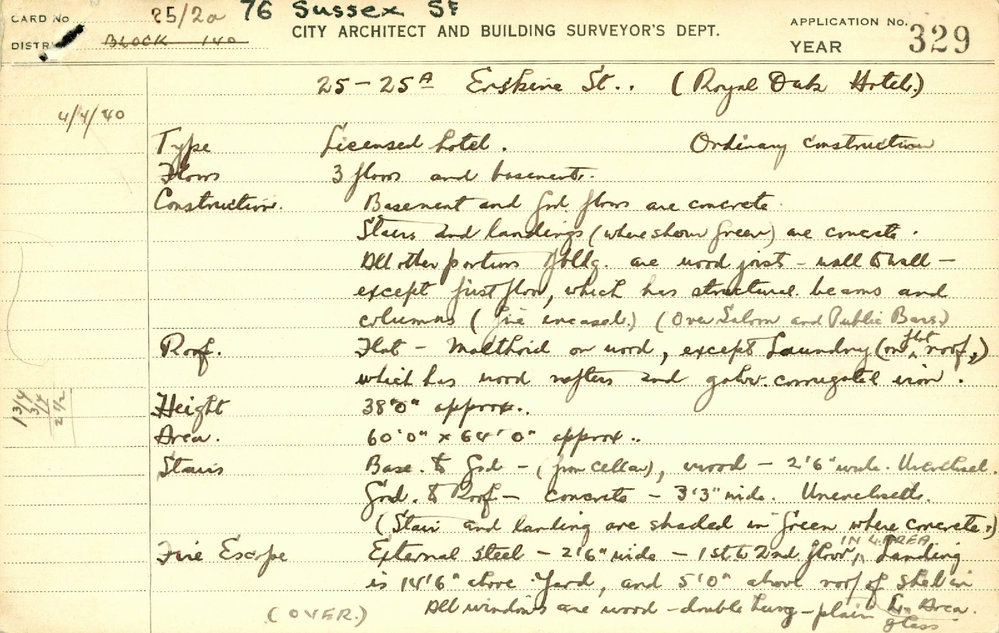 CARD No. 85/2a 76 Sussex St
CITY ARCHITECT AND BUILDING SURVEYOR'S DEPT.
APPLICATION No. 329
DISTRICT BLOCK 140
YEAR
25-25A Erskine St.. (Royal Oak Hotel.)
4/4/40
Type Licensed hotel. Ordinary construction
Floors 3 floors and basement.
Construction. Basement and Grd. floors are concrete.
Stairs and landings (where shown green) are concrete.
All other portions of bldg. are wood joist - wall to wall -
except first floor, which has structural beams and
columns (fire incased.) (Over Saloon and Public Bars.)
Roof. Flat - Malthoid on wood, except Laundry (on flat roof,)
which has wood rafters and galv. corrugated iron.
Height 38'0" approx..
Area. 60'0" x 64'0" approx..
1 3/4
3/4
2 1/2
Stairs Base. to Grd - (from cellar), wood - 2'6" wide. Unenclosed.
Grd. to Roof - concrete - 3'3" wide. Unenclosed.
(Stair and landing are shaded in Green where concrete.)
Fire Escape External steel - 2'6" wide - 1st to 2nd floor, IN L. AREA Landing
is 14'6" above Yard, and 5'0" above roof of shed in
L. Area.
All windows are wood - double hung - plain glass
(OVER.)